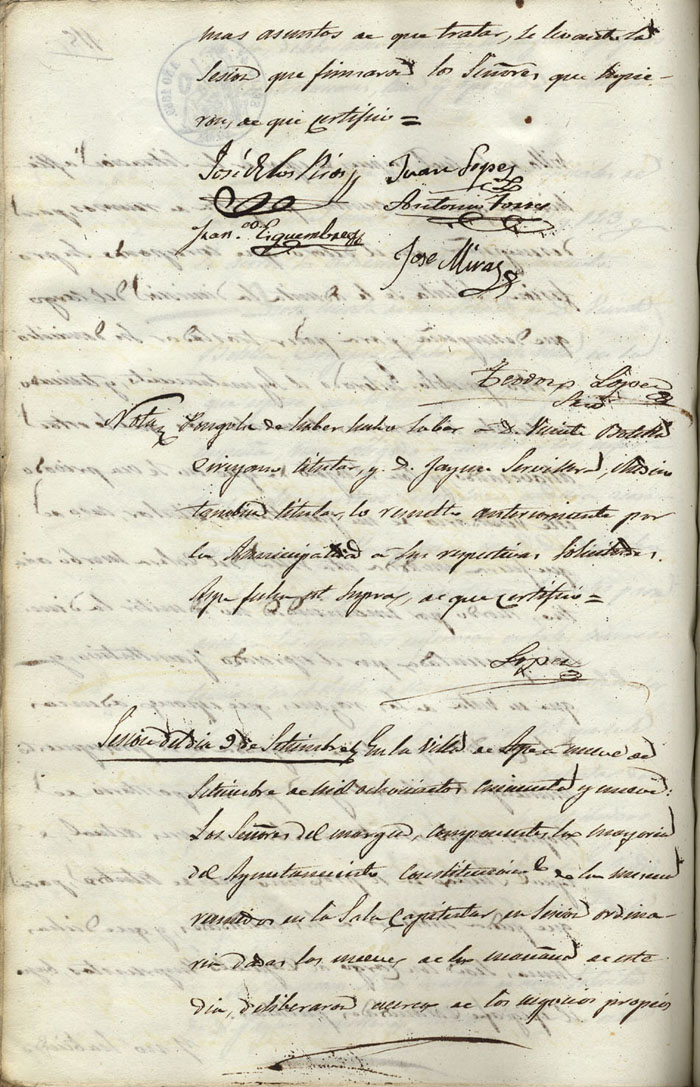 mas asuntos de que tratar, se levantó la
Sesion que firmaron los Señores que supie-
ron, de que certifico =
José de los Rios Juan Lopez
Antonio Torres
Fran.co Esquembre
Jose Miras
Teodoro Lopez
Srio
Nota Pongola de haber hecho saber a D. Vicente Botella
Cirujano titular, y D. Jayme Servillera, Medico
tambien titular, lo resuelto anteriormente por
la Municipalidad a sus respectivas solicitudes.
Aspe fecha ut supra, de que certifico =
Lopez
Sesion del dia 9 de Setiembre En la Villa de Aspe a nueve de
Setiembre de mil ochocientos cincuenta y nueve:
Los Señores del margen, componentes la mayoria
del Ayuntamiento constitucional de la misma
reunidos en la Sala Capitular en Sesion ordina-
ria dadas las nueve de la mañana de este
dia, deliberaron acerca de los negocios propios